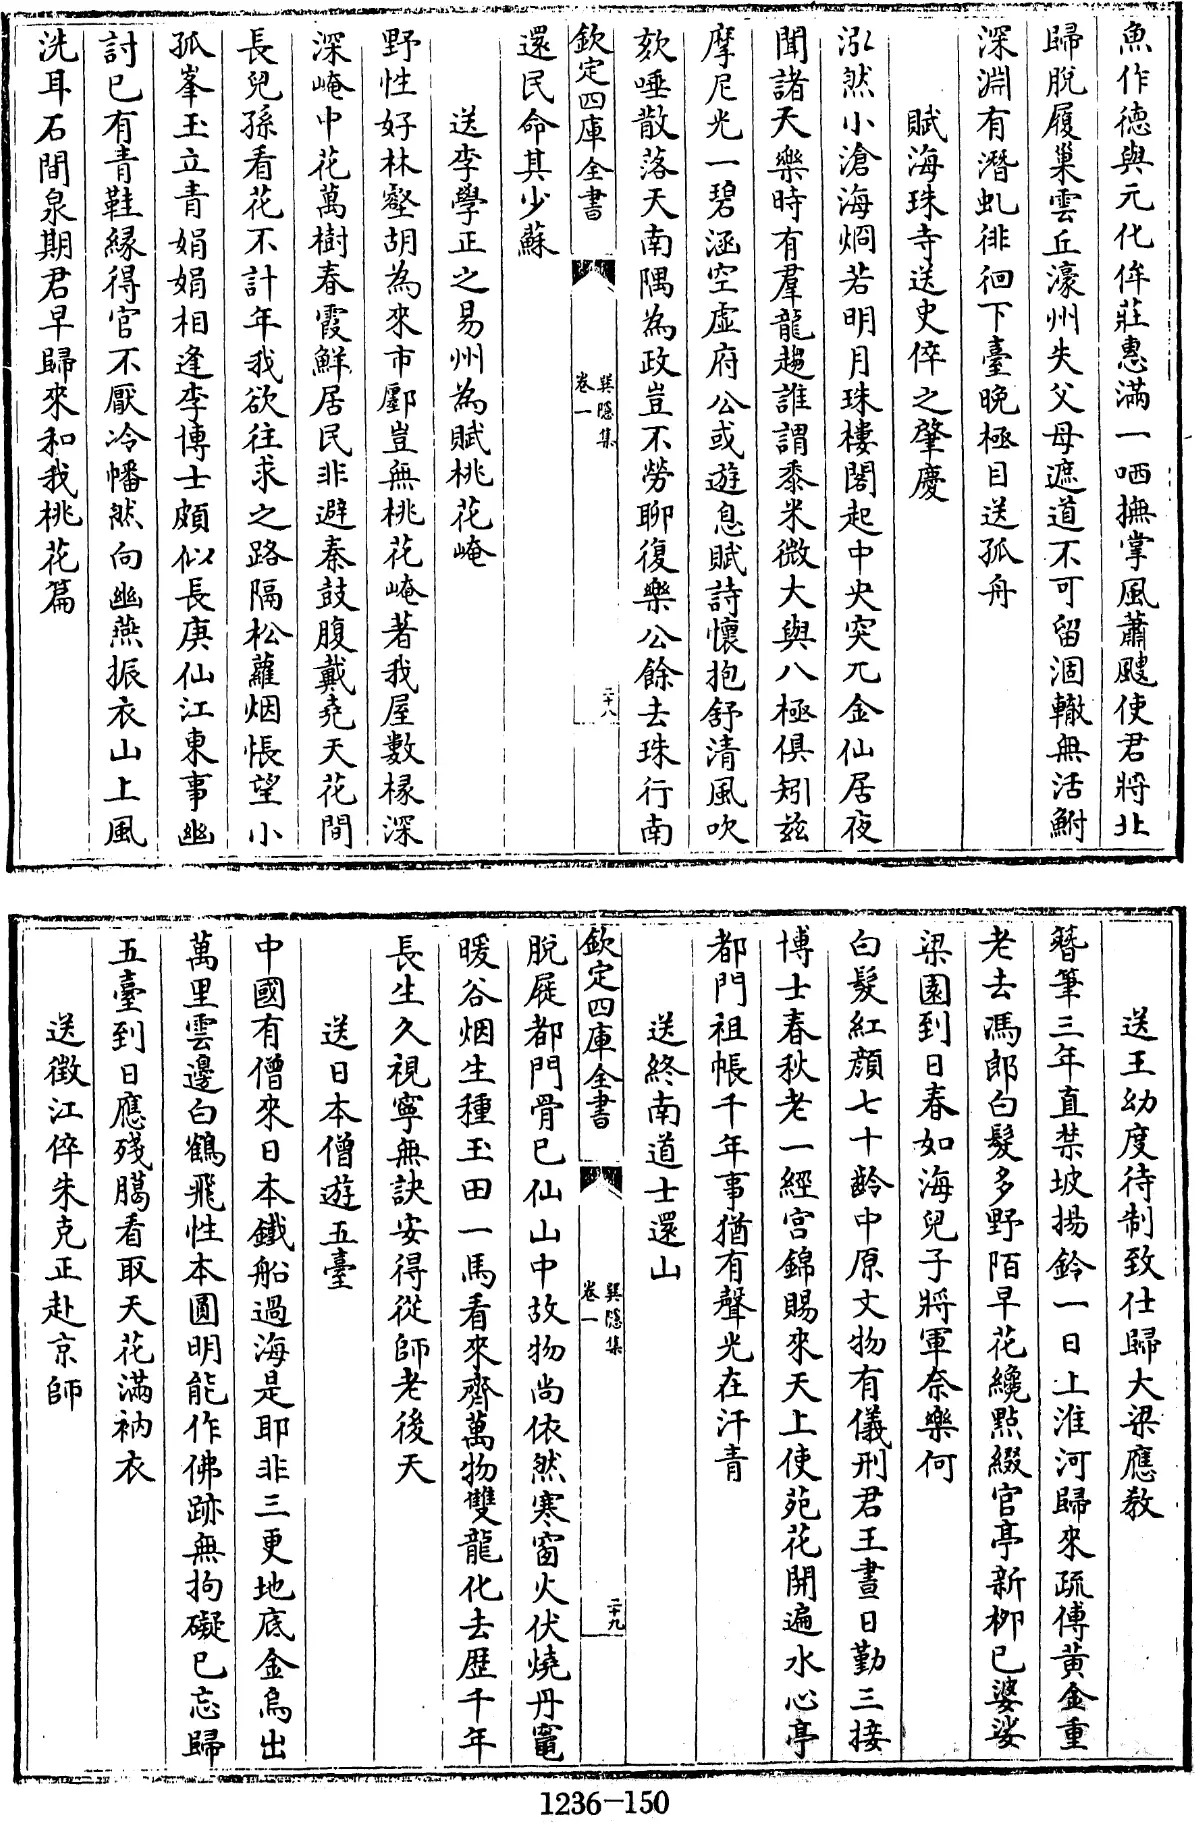 魚作德與元化侔莊惠滿一哂撫掌風蕭颼使君將北
歸脫履巢雲丘濠州失父母遮道不可留涸轍無活鮒
深淵有潛虬徘徊下臺晚極目送孤舟
賦海珠寺送史倅之肇慶
泓然小滄海烱若明月珠樓閣起中央突兀金仙居夜
聞諸天樂時有羣龍趨誰謂黍米微大與八極俱矧兹
摩尼光一碧涵空虛府公或遊息賦詩懷抱舒清風吹
欬唾散落天南隅為政豈不勞聊復樂公餘去珠行南
欽定四庫全書
巽隱集
卷一
二十八
還民命其少蘇
送李學正之易州為賦桃花崦
野性好林壑胡為來市鄽豈無桃花崦著我屋數椽深
深崦中花萬樹春霞鮮居民非避秦鼓腹戴堯天花間
長兒孫看花不計年我欲往求之路隔松蘿烟悵望小
孤峯玉立青娟娟相逢李博士頗似長庚仙江東事幽
討已有青鞋緣得官不厭冷幡然向幽燕振衣山上風
洗耳石間泉期君早歸來和我桃花篇
送王幼度待制致仕歸大梁應教
簪筆三年直禁坡揚鈴一日上淮河歸來疏傅黃金重
老去馮郎白髮多野陌早花纔點綴官亭新柳已婆娑
梁園到日春如海兒子將軍奈樂何
白髮紅顏七十齡中原文物有儀刑君王晝日勤三接
博士春秋老一經宮錦賜來天上使苑花開遍水心亭
都門祖帳千年事猶有聲光在汗青
送終南道士還山
欽定四庫全書
巽隱集
卷一
二十九
脫屣都門骨已仙山中故物尚依然寒窗火伏燒丹竈
暖谷烟生種玉田一馬看來齊萬物雙龍化去歷千年
長生久視寧無訣安得從師老後天
送日本僧遊五臺
中國有僧來日本鐵船過海是耶非三更地底金烏出
萬里雲邊白鶴飛性本圓明能作佛跡無拘礙已忘歸
五臺到日應殘臈看取天花滿衲衣
送徵江倅朱克正赴京師
1236-150